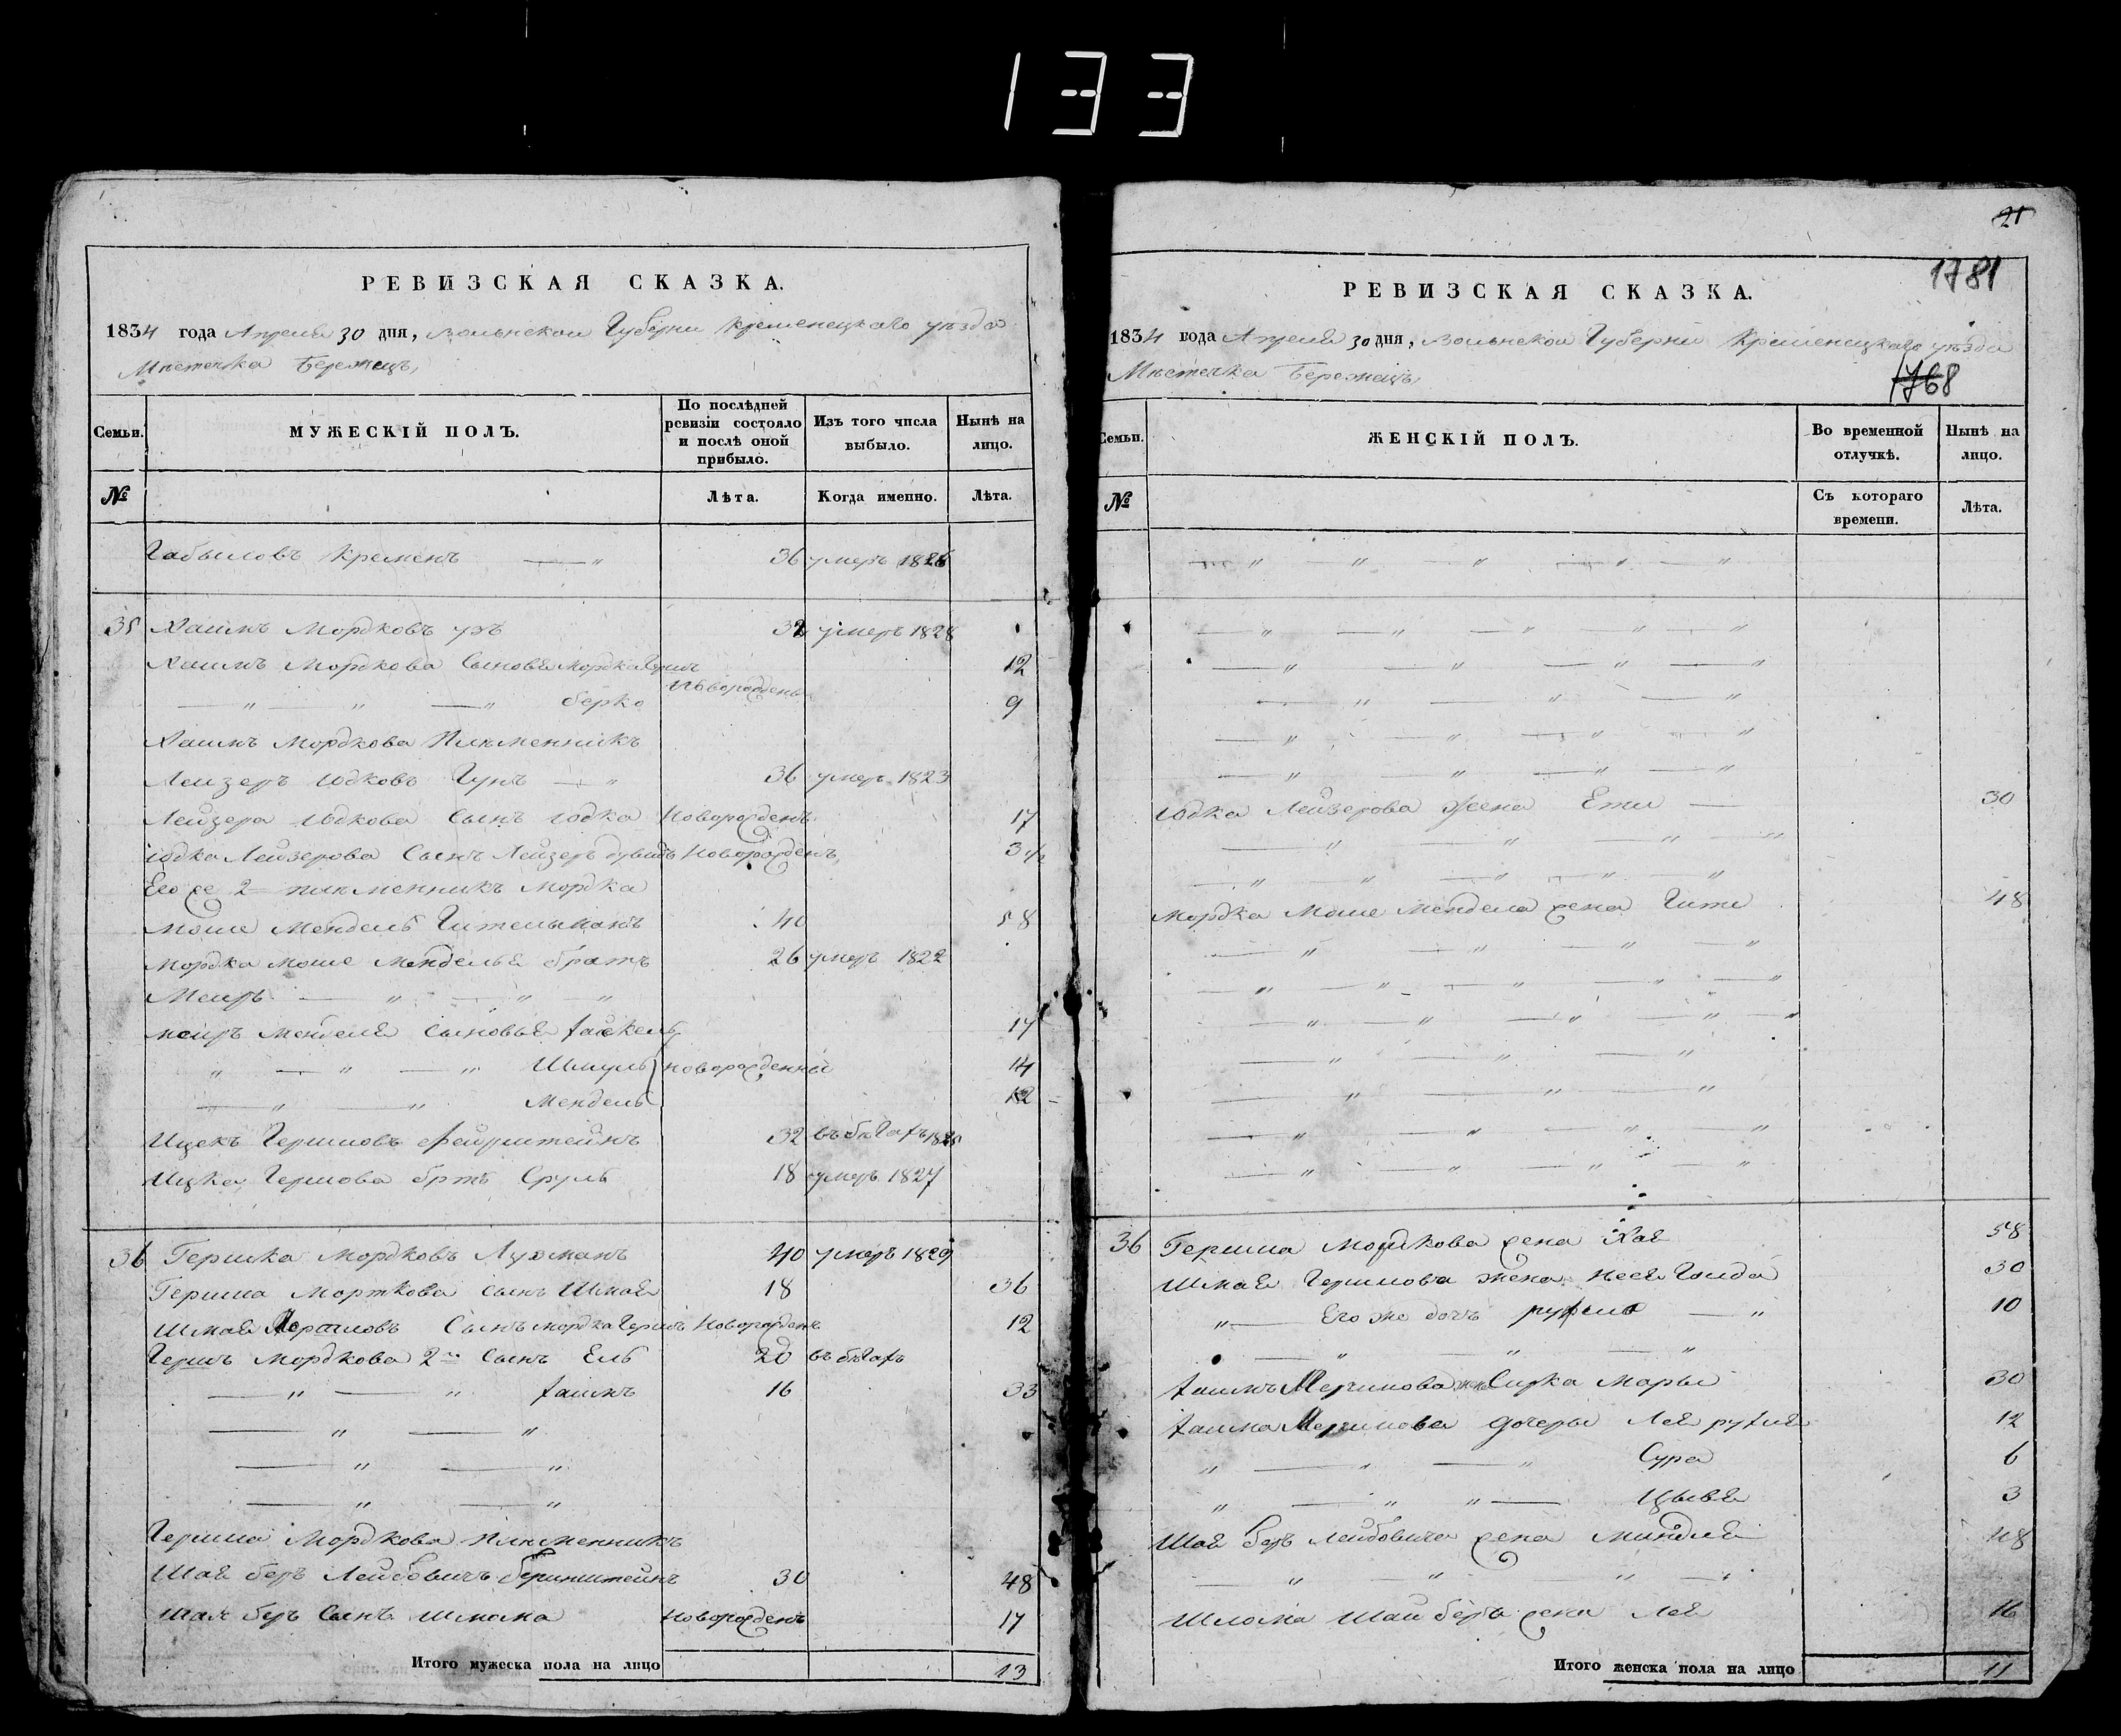 133
РЕВИЗСКАЯ СКАЗКА.
1834 года Апреля 30 дня, Волынской Губерни Кременецкаго уѣзда
Мѣстечка Бережецъ,
Семьи. МУЖЕСКІЙ ПОЛЪ. По послѣдней ревизіи состояло и послѣ оной прибыло. Изъ того числа выбыло. Нынѣ на лицо.
№ Лѣта. Когда именно. Лѣта.
Кременъ 36 умеръ 1826
35 Хаимъ Мордковъ 32 умеръ 1828
Хаимъ Мордкова Сыновя Мордка Гершъ 12
Новорожденъ
— " — " — " берко 9
Хаимъ Мордкова Племенникъ
Лейзеръ Юдковъ — " 36 умеръ 1823
Лейзера Юдкова Сынъ Юдка Новорожденъ 17
Юдка Лейзерова Сынъ Лейзеръ дувидъ Новорожденъ 3 1/2
Его же 2 племенникъ Мордка
Моше Мендель Гительманъ 40 58
Мордка Моше Менделья братъ 26 умеръ 1822
Меиръ — " — " "
Меиръ Менделя Сыновья 17
" — " — " Шмуль новорожденны 14
— " — " Мендель 12
Ицекъ Гершовъ Фейрштейнъ 32 въ бѣгахъ
Ицка Гершова братъ Сруль 18 умеръ 1827
36 Гершка Мордковъ Лухманъ 40 умеръ 1829
Герша Морткова Сынъ Шмая 18 36
Шмая Сынъ Мордка Гершъ Новорожденъ 12
Гершъ Мордкова 2й Сынъ Ель 20 въ бѣгахъ
— " — " хаимъ 16 33
— " — "
— " — "
— " — "
Герша Мордкова Племенникъ
Шая беръ Лейбовичъ 30 48
Шая беръ Сынъ Шлома Новорожденъ 17
Итого мужеска пола на лицо 13
21
1781
РЕВИЗСКАЯ СКАЗКА.
1834 года Апреля 30 дня, Волынской Губерни Кременецкаго уѣзда
Мѣстечка Бережецъ,
1768
Семьи. ЖЕНСКІЙ ПОЛЪ. Во временной отлучкѣ. Нынѣ на лицо.
№ Съ котораго времени. Лѣта.
Юдка Лейзерова Жена Ети — 30
Мордка Моше Мендела жена Гити 48
36 Герша Мошкова жена Хая 58
Шмая Гершова жена Неся Голда 30
" — Его же дочъ рухля — " 10
— " " — "
хаимъ жена Сирка Марьи 30
хаима дочеры Лея рухля 12
" — " — " Сура 6
" — " " — Цывя 3
Шая беръ Лейбовича жена Миндля 48
— " — " " — "
Шлома Шаи бера жена Лея 16
Итого женска пола на лицо 11